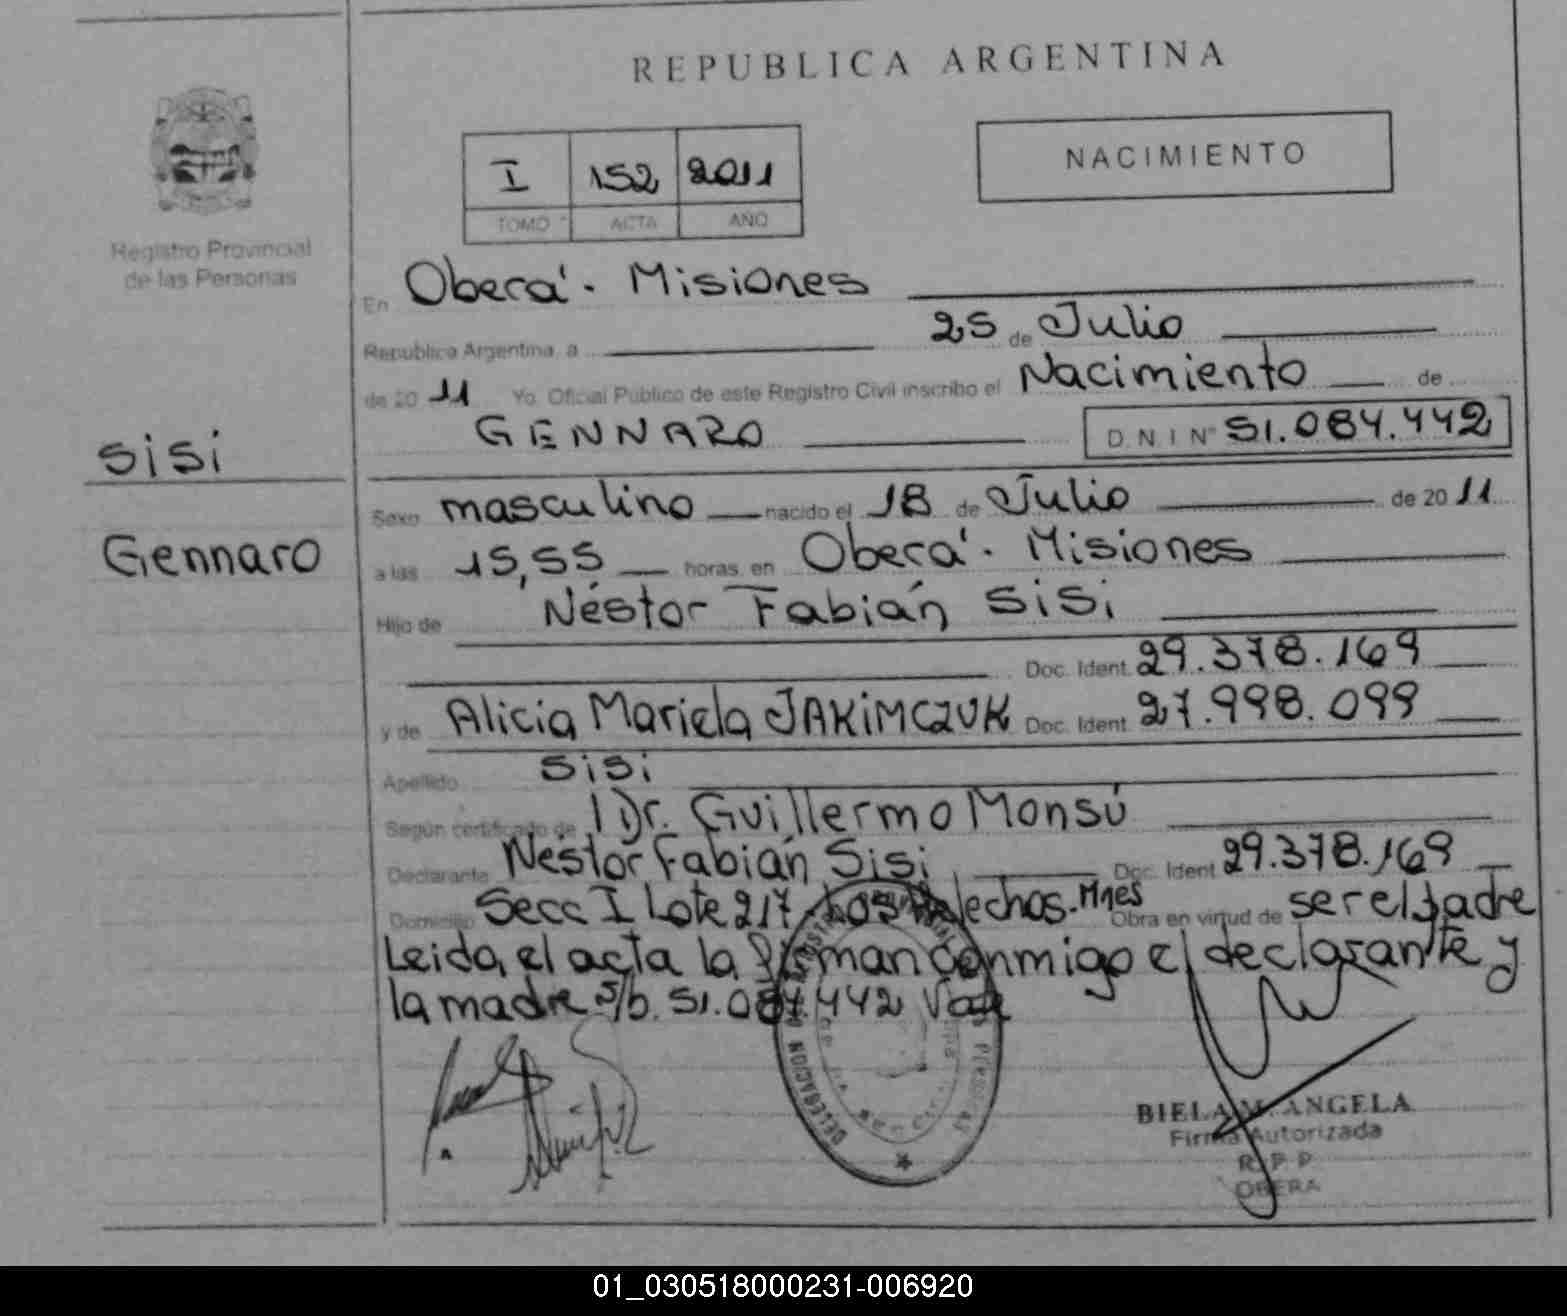 REPUBLICA ARGENTINA
I 152 2011
TOMO ACTA AÑO
NACIMIENTO
Registro Provincial
de las Personas
En Oberá - Misiones
República Argentina, a 25 de Julio
de 20 11 Yo, Oficial Público de este Registro Civil inscribo el Nacimiento de
GENNARO D.N.I Nº 51.084.442
Sisi
Gennaro
Sexo masculino nacido el 18 de Julio de 20 11
a las 15,55 horas, en Oberá - Misiones
Hijo de Néstor Fabián Sisi
Doc. Ident. 29.378.169
y de Alicia Mariela JAKIMCZUK Doc. Ident. 27.998.099
Apellido Sisi
Según certificado de Dr. Guillermo Monsú
Declarante Néstor Fabián Sisi Doc. Ident 29.378.169
Domicilio Secc I Lote 217 Los Helechos-Mnes Obra en virtud de ser el padre
Leida, el acta la firman conmigo el declarante y
la madre S/b. 51.084.442 Vale
DELEGACION
BIELA M. ANGELA
Firma Autorizada
R P P
OBERA
01_030518000231-006920